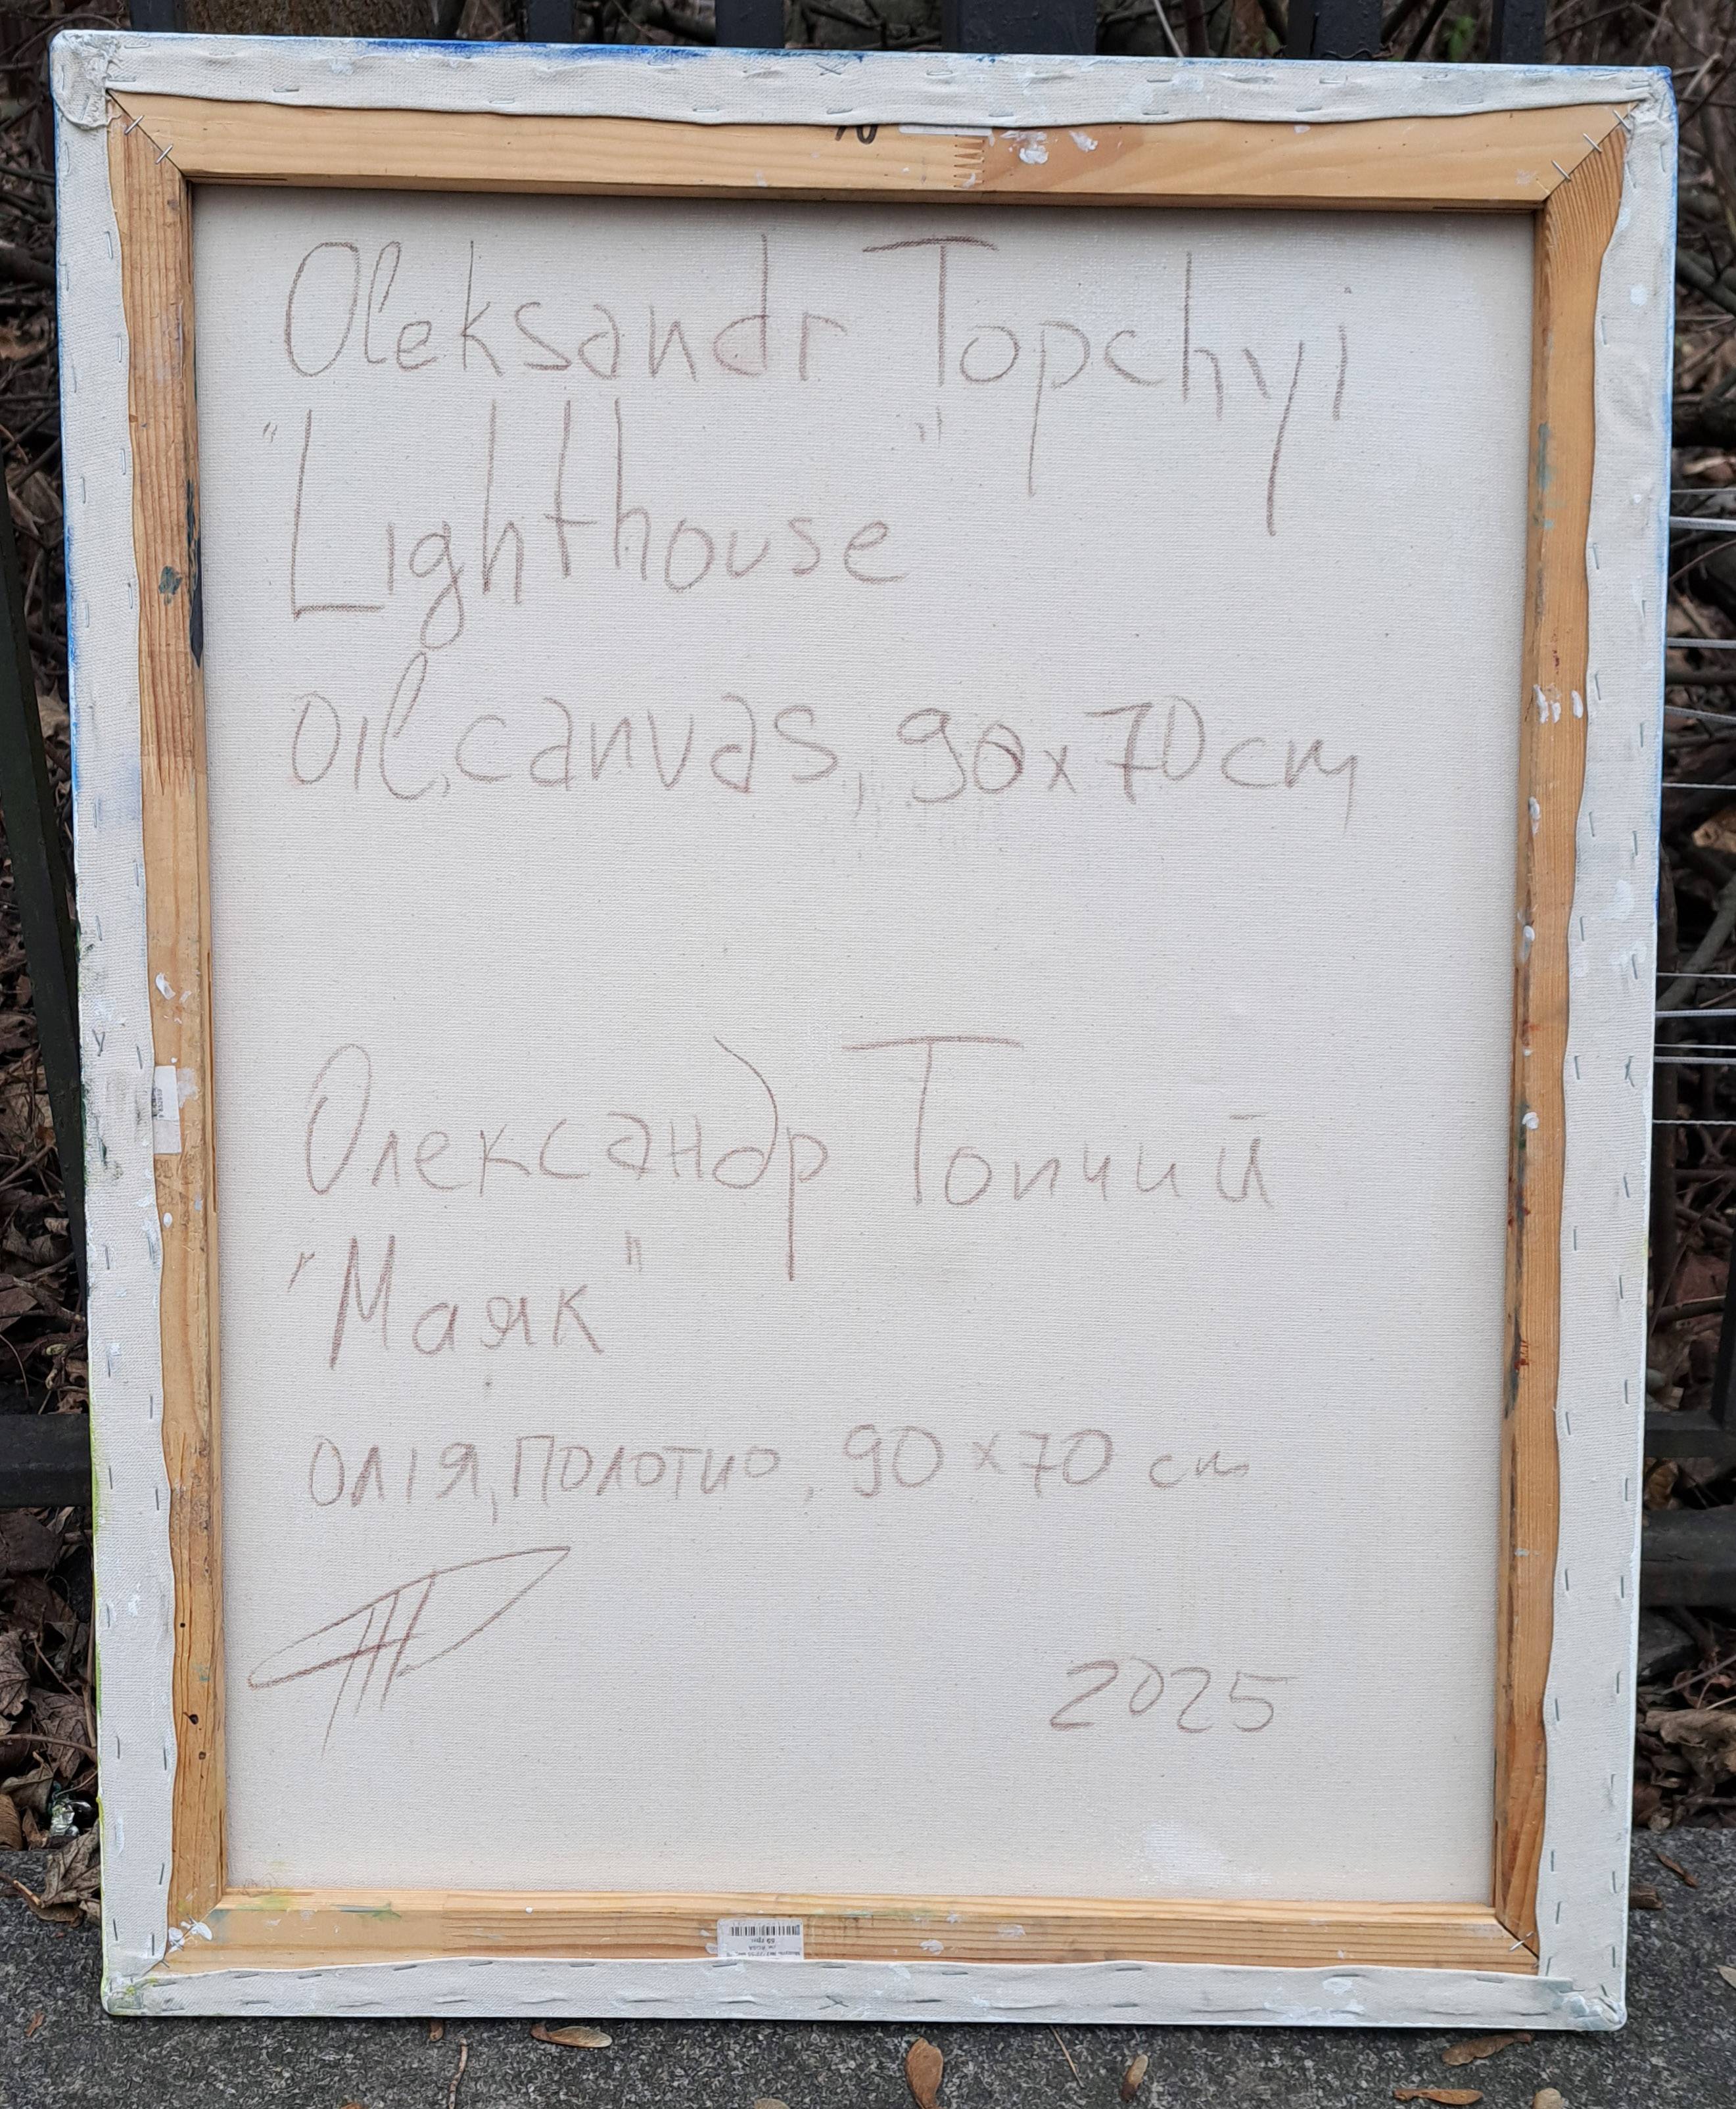 70
Oleksandr Topchyi
"Lighthouse"
oil, canvas, 90x70cm
Олександр Топчий
"Маяк"
олія, полотно, 90x70 см
2025